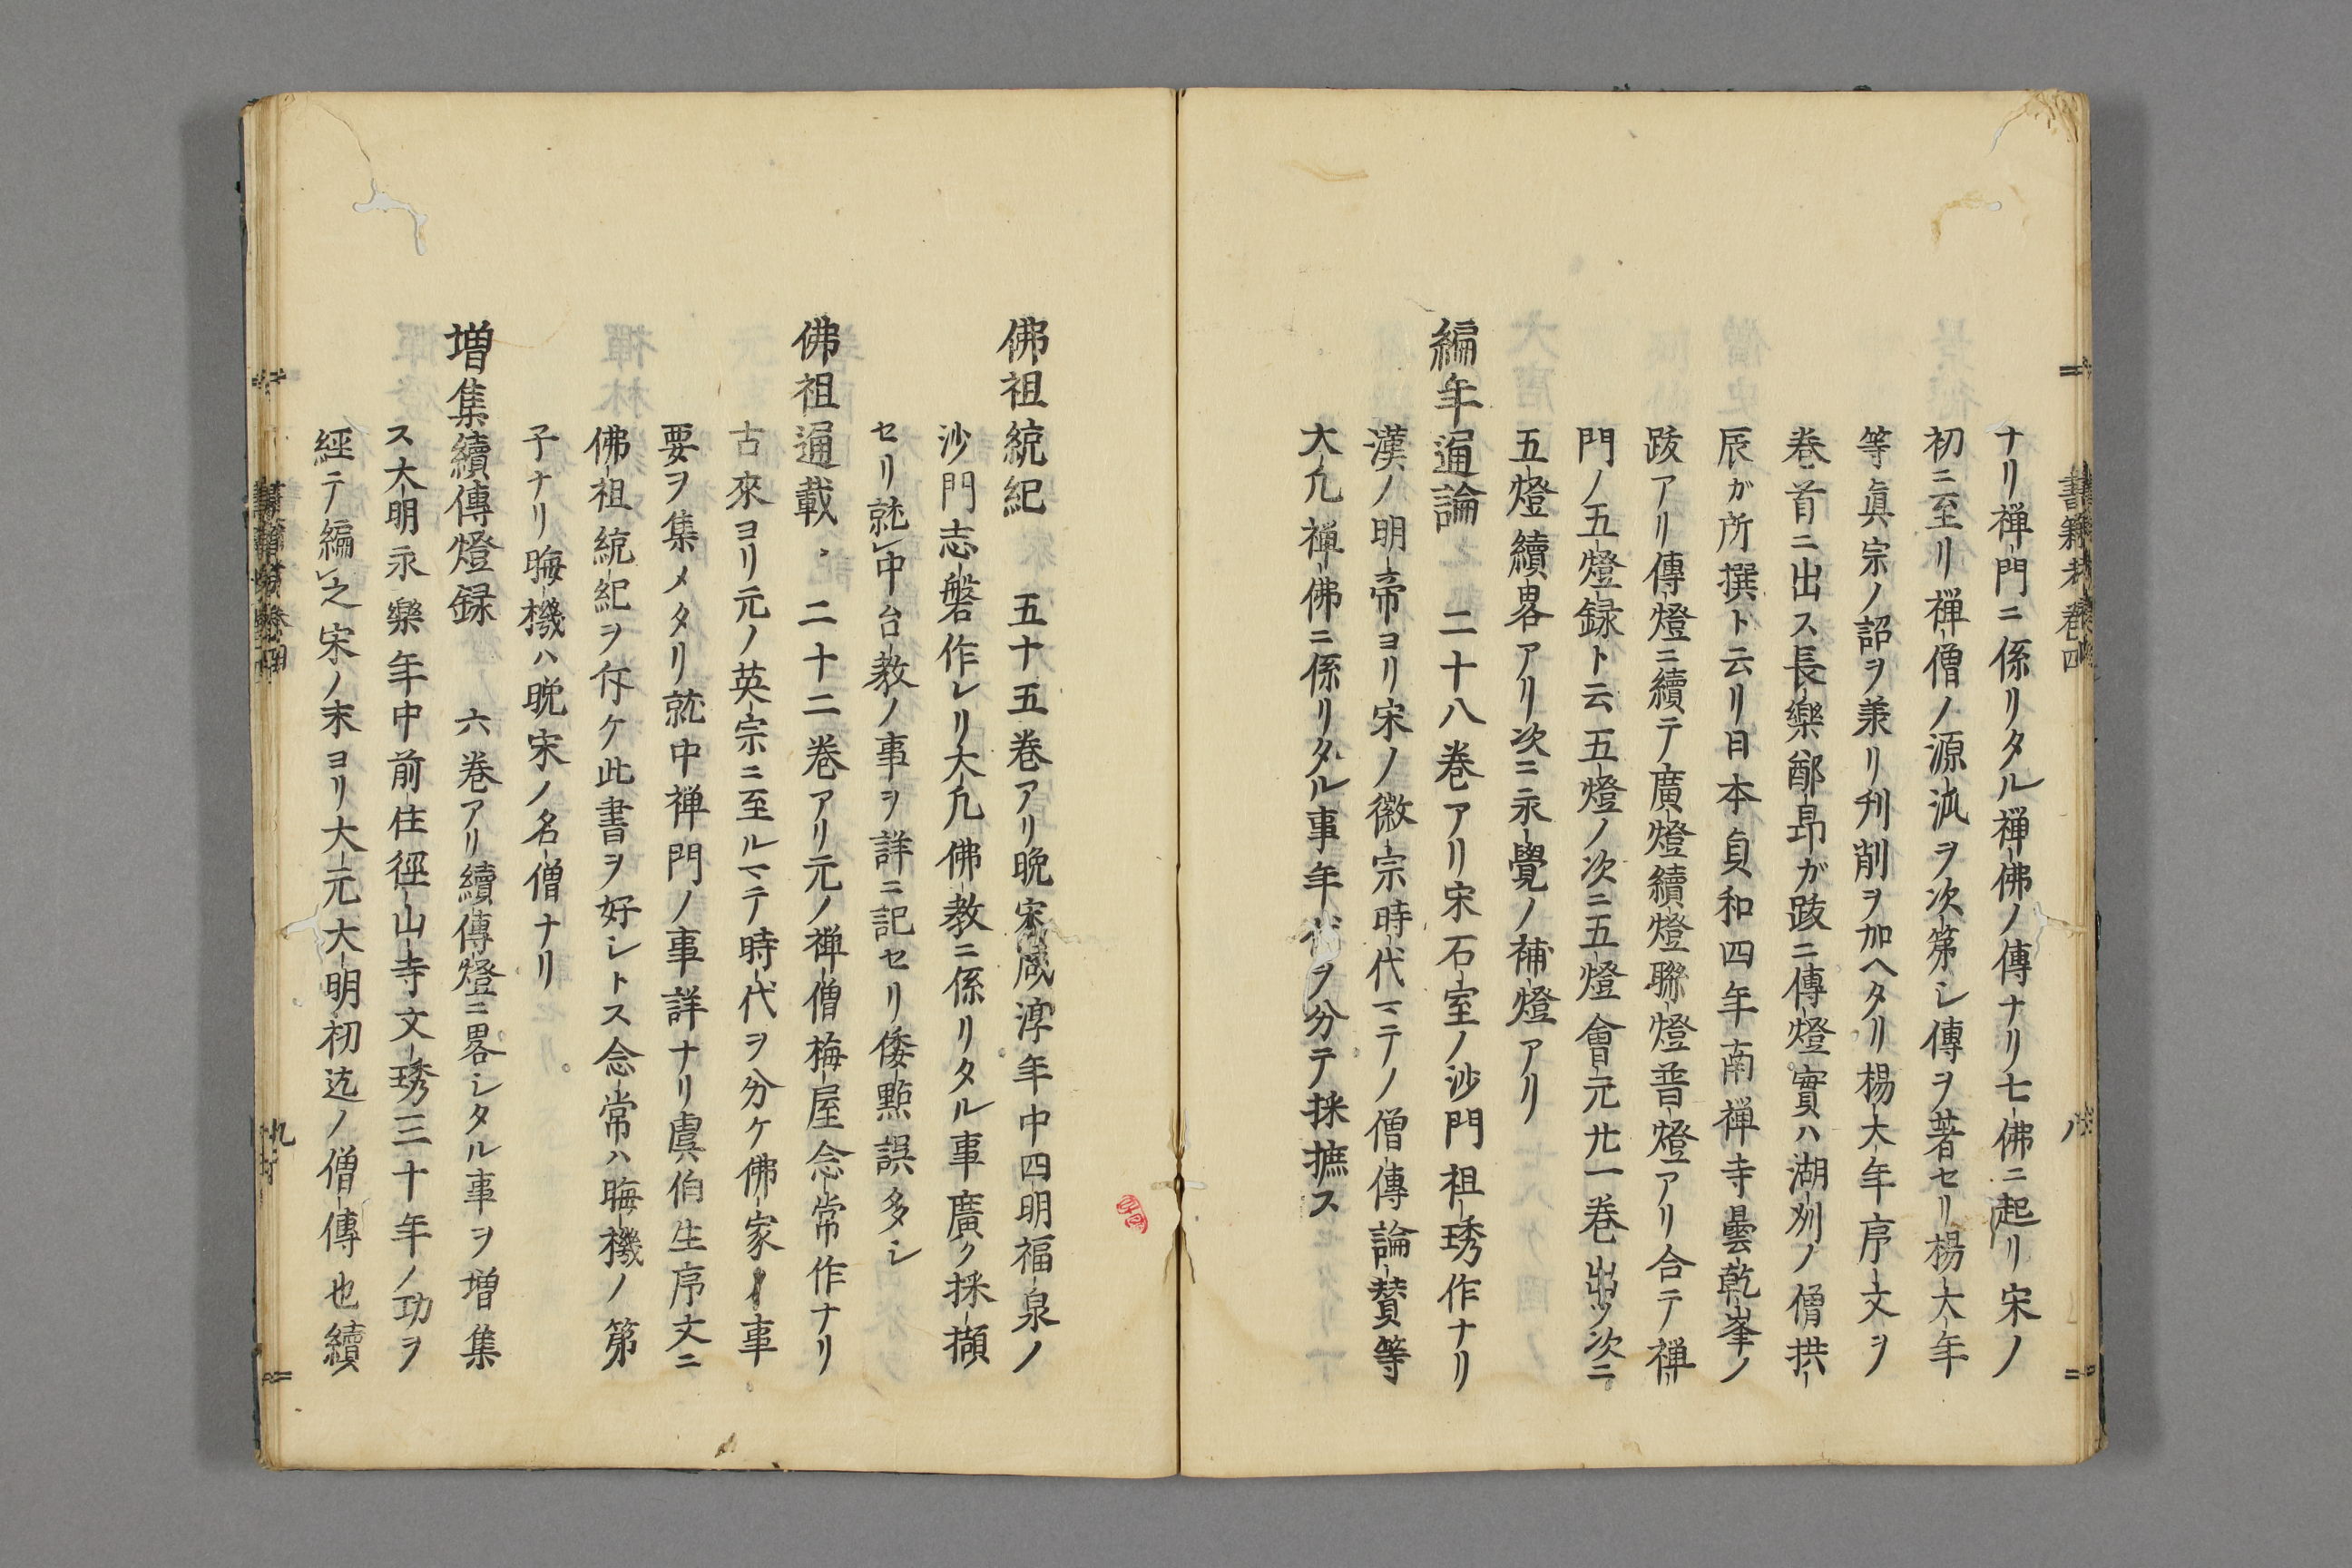 書籍考卷四
八
ナリ禅門ニ係リタル禅佛ノ傳ナリ七佛ニ起リ宋ノ
初ニ至リ禅僧ノ源流ヲ次第シ傳ヲ著セリ楊大年
等眞宗ノ詔ヲ兼リ刊削ヲ加ヘタリ楊大年序文ヲ
巻首ニ出ス長樂鄭昻ガ跋ニ傳燈實ハ湖州ノ僧拱
辰ガ所撰ト云リ日本貞和四年南禅寺曇乾峯ノ
跋アリ傳燈ニ續テ廣燈續燈聯燈普燈アリ合テ禅
門ノ五燈録ト云五燈ノ次ニ五燈會元廿一巻出ツ次ニ
五燈續畧アリ次ニ永覺ノ補燈アリ
編年通論 二十八巻アリ宋石室ノ沙門祖琇作ナリ
漢ノ明帝ヨリ宋ノ徽宗時代マテノ僧傳論賛等
大凢禅佛ニ係リタル事年代ヲ分テ採摭ス
佛祖統紀 五十五巻アリ晩宋咸淳年中四明福泉ノ
沙門志磐作レリ大凢佛教ニ係リタル事廣ク採擷
セリ就中台教ノ事ヲ詳ニ記セリ倭點誤多シ
佛祖通載 二十二巻アリ元ノ禅僧梅屋念常作ナリ
古來ヨリ元ノ英宗ニ至ルマテ時代ヲ分ケ佛家ノ事
要ヲ集メタリ就中禅門ノ事詳ナリ虞伯生序文ニ
佛祖統紀ヲ斥ケ此書ヲ好シトス念常ハ晦機ノ第
子ナリ晦機ハ晩宋ノ名僧ナリ
増集續傳燈録 六巻アリ續傳燈ニ畧シタル事ヲ増集
ス大明永樂年中前住徑山寺文琇三十年ノ功ヲ
經テ編之宋ノ末ヨリ大元大明初迄ノ僧傳也續
九